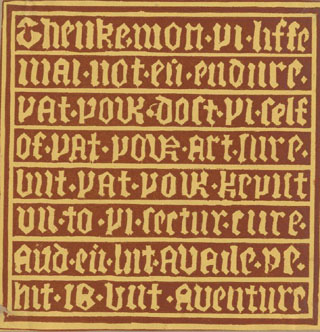 Thenke·mon·þi·liffe
mai·not·eū·endure·
þat·þow·dost·þi·self
of·þat·þow·art·sure·
but·þat·þow·kepist
vn·to·þi·sectur·cure·
and·eū·hit·availe·þe·
hit·is·but·aventure